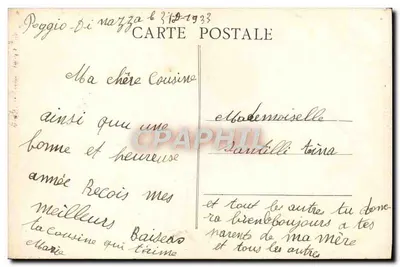 Poggio-Di nazza le 31D-1933
CARTE POSTALE
Ma chère Cousine
ainsi que une
bonne et heureuse
année Reçois mes
meilleurs Baisers
ta cousine qui t'aime
Maria
Mademoiselle
Santilli Toina
et tout les autres tu donne
ra bien toujours a tes
parents de ma mère
et tous les autres
CARPHIL